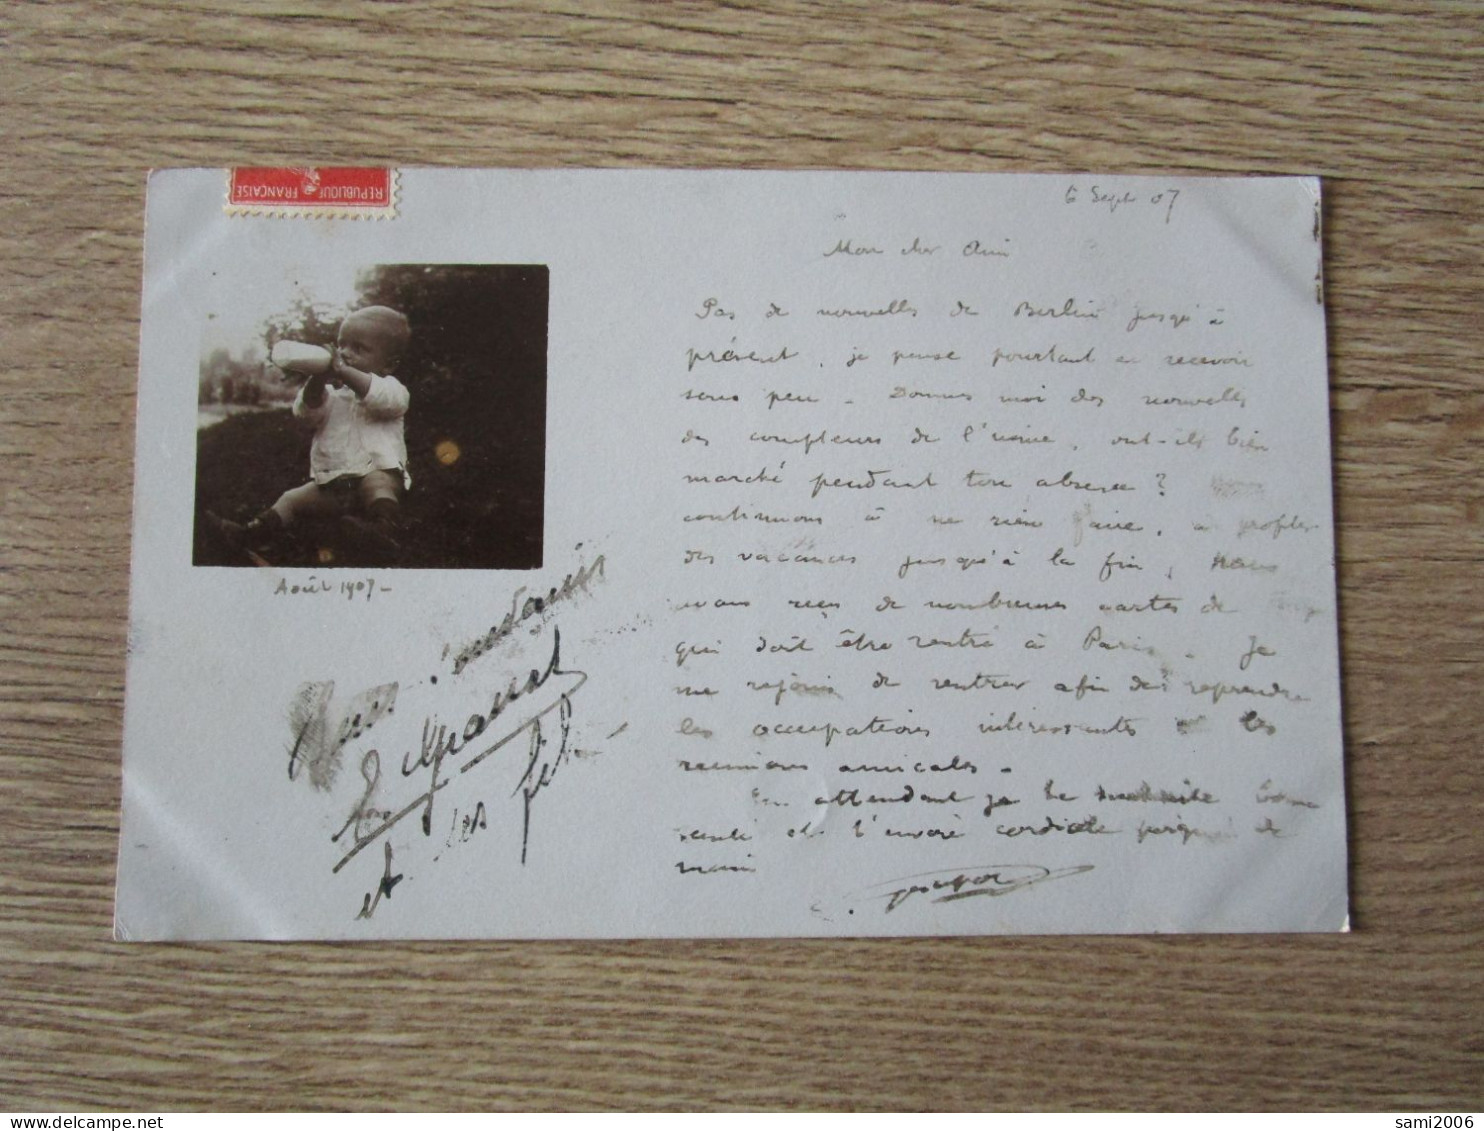 REPUBLIQUE FRANÇAISE
6 Sept 07
Mon cher Ami
Pas de nouvelles de Berlin jusqu'à
présent, je pense pourtant en recevoir
sous peu - Donnes moi des nouvelles
des compteurs de l'usine, ont-ils bien
marché pendant ton absence ?
continuons à ne rien faire, à profiter
des vacances jusqu'à la fin, nous
avons reçu de nombreuses cartes de
qui doit être rentré à Paris. Je
me rejouis de rentrer afin de reprendre
les occupations intéressantes et les
reunions amicales.
En attendant je te souhaite bonne
santé et t'envoie cordiale poignée de
main
Août 1907 -
et les
sami2006